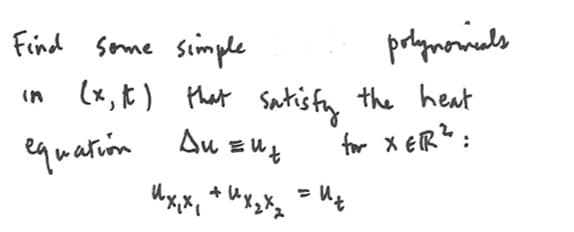 Find some simple polynomials
in (x, t) that satisfy the heat
equation Δu ≡ u_t for x ∈ ℝ² :
u_{x₁x₁} + u_{x₂x₂} = u_t